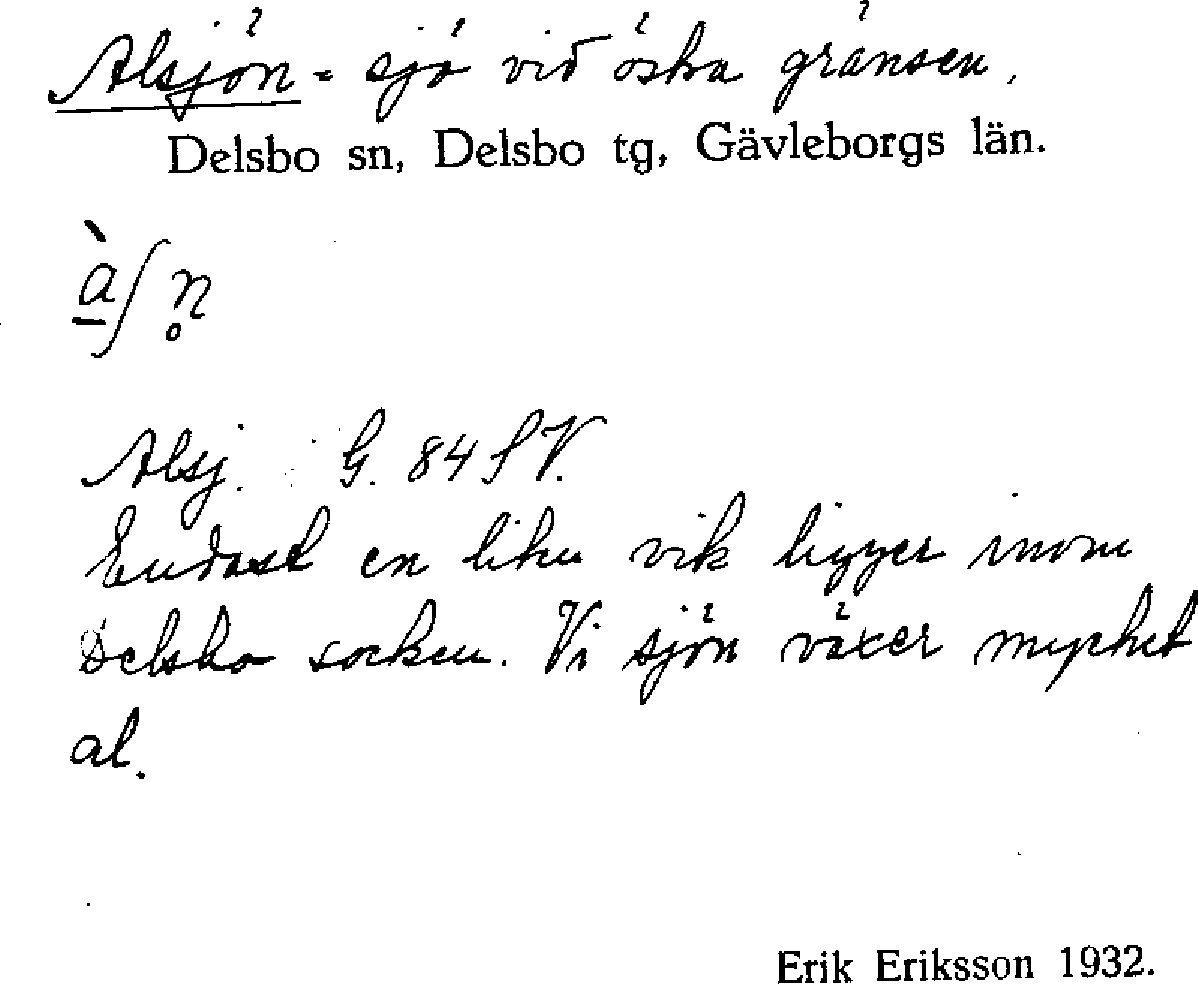 Alsjön = sjö vid östra gränsen.
Delsbo sn, Delsbo tg, Gävleborgs län.
à̱ʃn̥
Alsj. G. 84 SV.
Endast en liten vik ligger inom
Delsbo socken. Vi sjön växer mycket
al.
Erik Eriksson 1932.